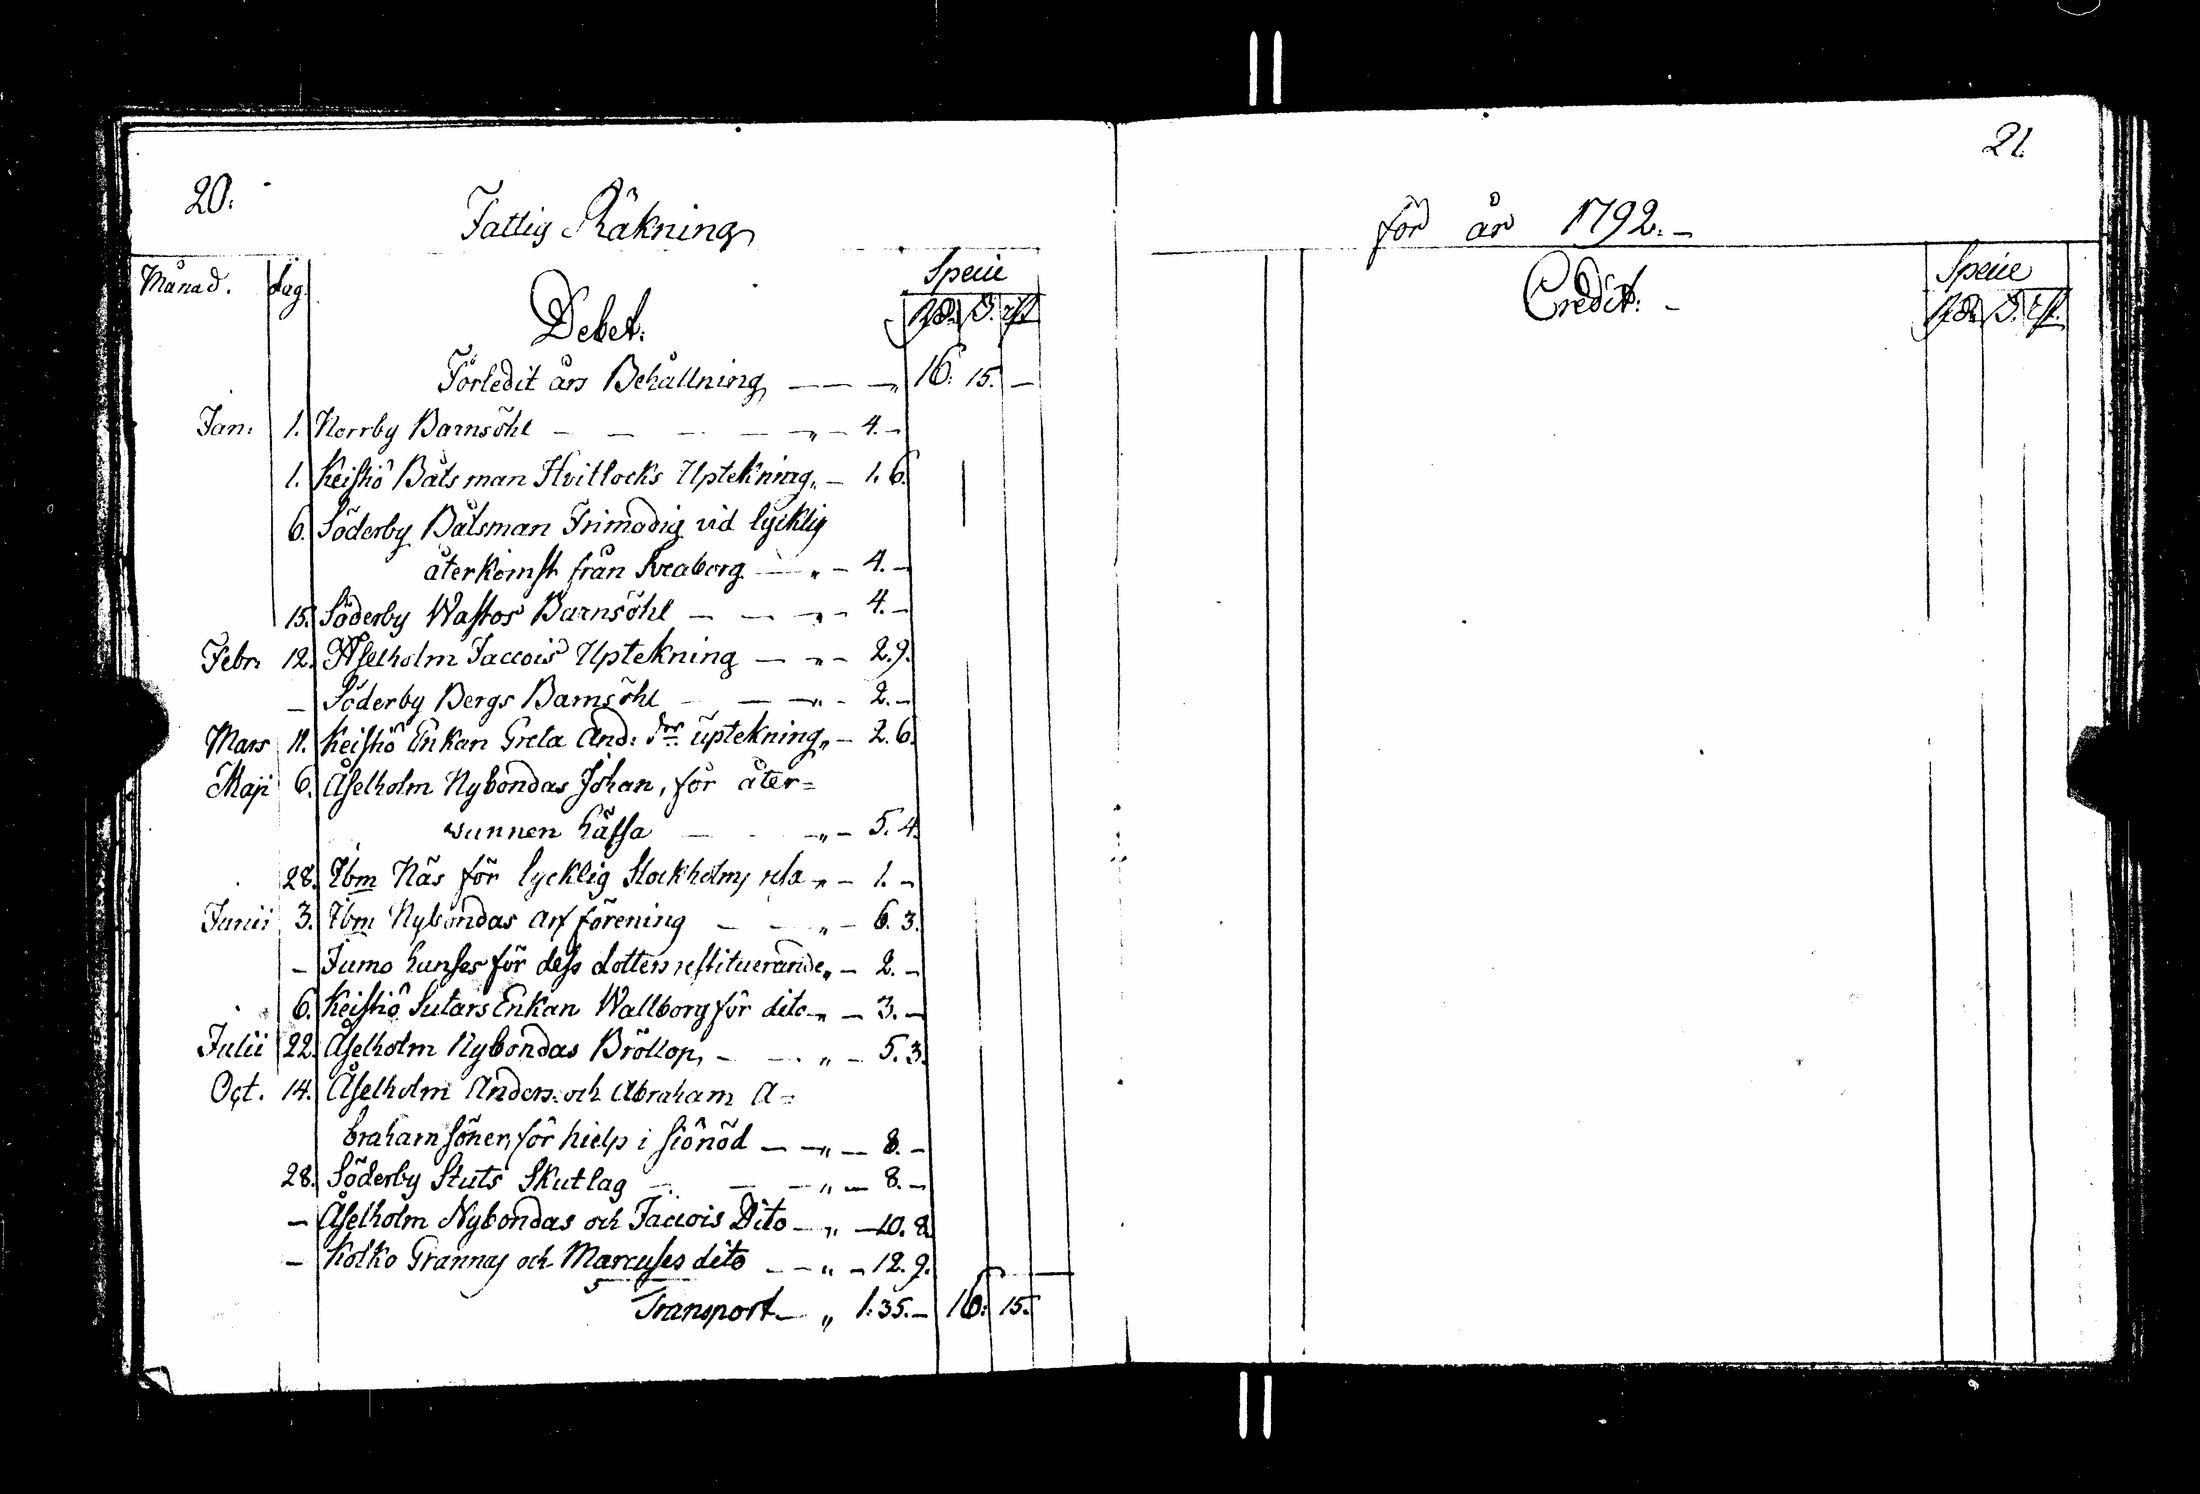 20.
Fattig Räkning
Månad. dag. Specie
Debet. Rd. ß. rst.
Förledit års Behållning — — „ 16. 15. —
Jan: 1. Norrby Barnsöhl — — — — „ — 4. —
1. Keistiö Båtsman Hvitlocks Uptekning „ — 1. 6.
6. Söderby Båtsman Frimodig vid lycklig
återkomst från Sveaborg — „ — 4. —
15. Söderby Wastos Barnsöhl — — „ — 4. —
Febr: 12. Åselholm Jaccois Uptekning — „ — 2. 9.
— Söderby Bergs Barnsöhl — — „ — 2. —
Mars 11. Keistiö Enkan Greta And: dr uptekning „ — 2. 6.
Maji 6. Åselholm Nybondas Johan, för åter=
vunnen hälsa — — „ — 5. 4.
28. Ibm Näs för lycklig Stockholms resa „ — 1. —
Junii 3. Ibm Nybondas arf förening — — „ — 6. 3.
— Jumo hanses för dess dotters restituerande „ — 2. —
6. Keistiö Sutars Enkan Wallborg för dito „ — 3. —
Julii 22. Åselholm Nybondas Bröllop, — — „ — 5. 3.
Oct. 14. Åselholm Anders: och Abraham A=
brahamsöner, för hielp i siönöd — — „ — 8. —
28. Söderby Stuts Skutlag — — — „ — 8. —
— Åselholm Nybondas och Jaccois Dito — „ — 10. 8.
— Kolko Grannas och Marcuses dito — — „ — 12. 9.
Transport — „ 1: 35. — 16: 15.
21.
för år 1792. —
Specie
Credit: — Rd. ß. rst.